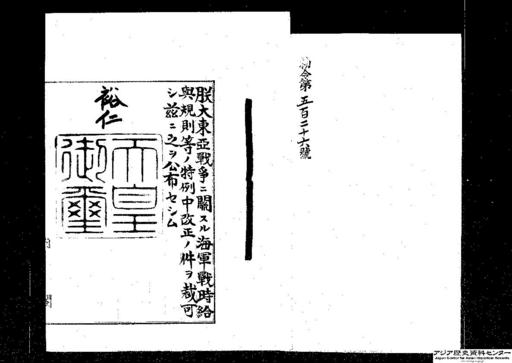 勅令第五百二十六號
朕大東亞戰爭ニ關スル海軍戰時給
與規則等ノ特例中改正ノ件ヲ裁可
シ茲ニ之ヲ公布セシム
裕仁
天皇御璽
内閣
アジア歴史資料センター
Japan Center for Asian Historical Records